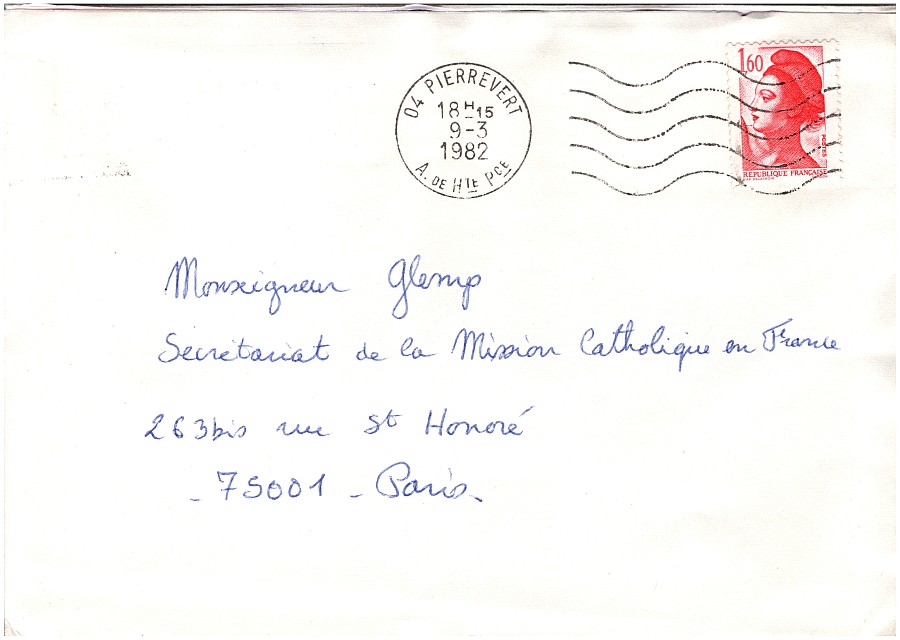 04 PIERREVERT
18H15
9-3
1982
A. DE HTE PCE
1,60
POSTES
REPUBLIQUE FRANÇAISE
Monseigneur Glemp
Secrétariat de la Mission Catholique en France
263bis rue St Honoré
- 75001 - Paris.